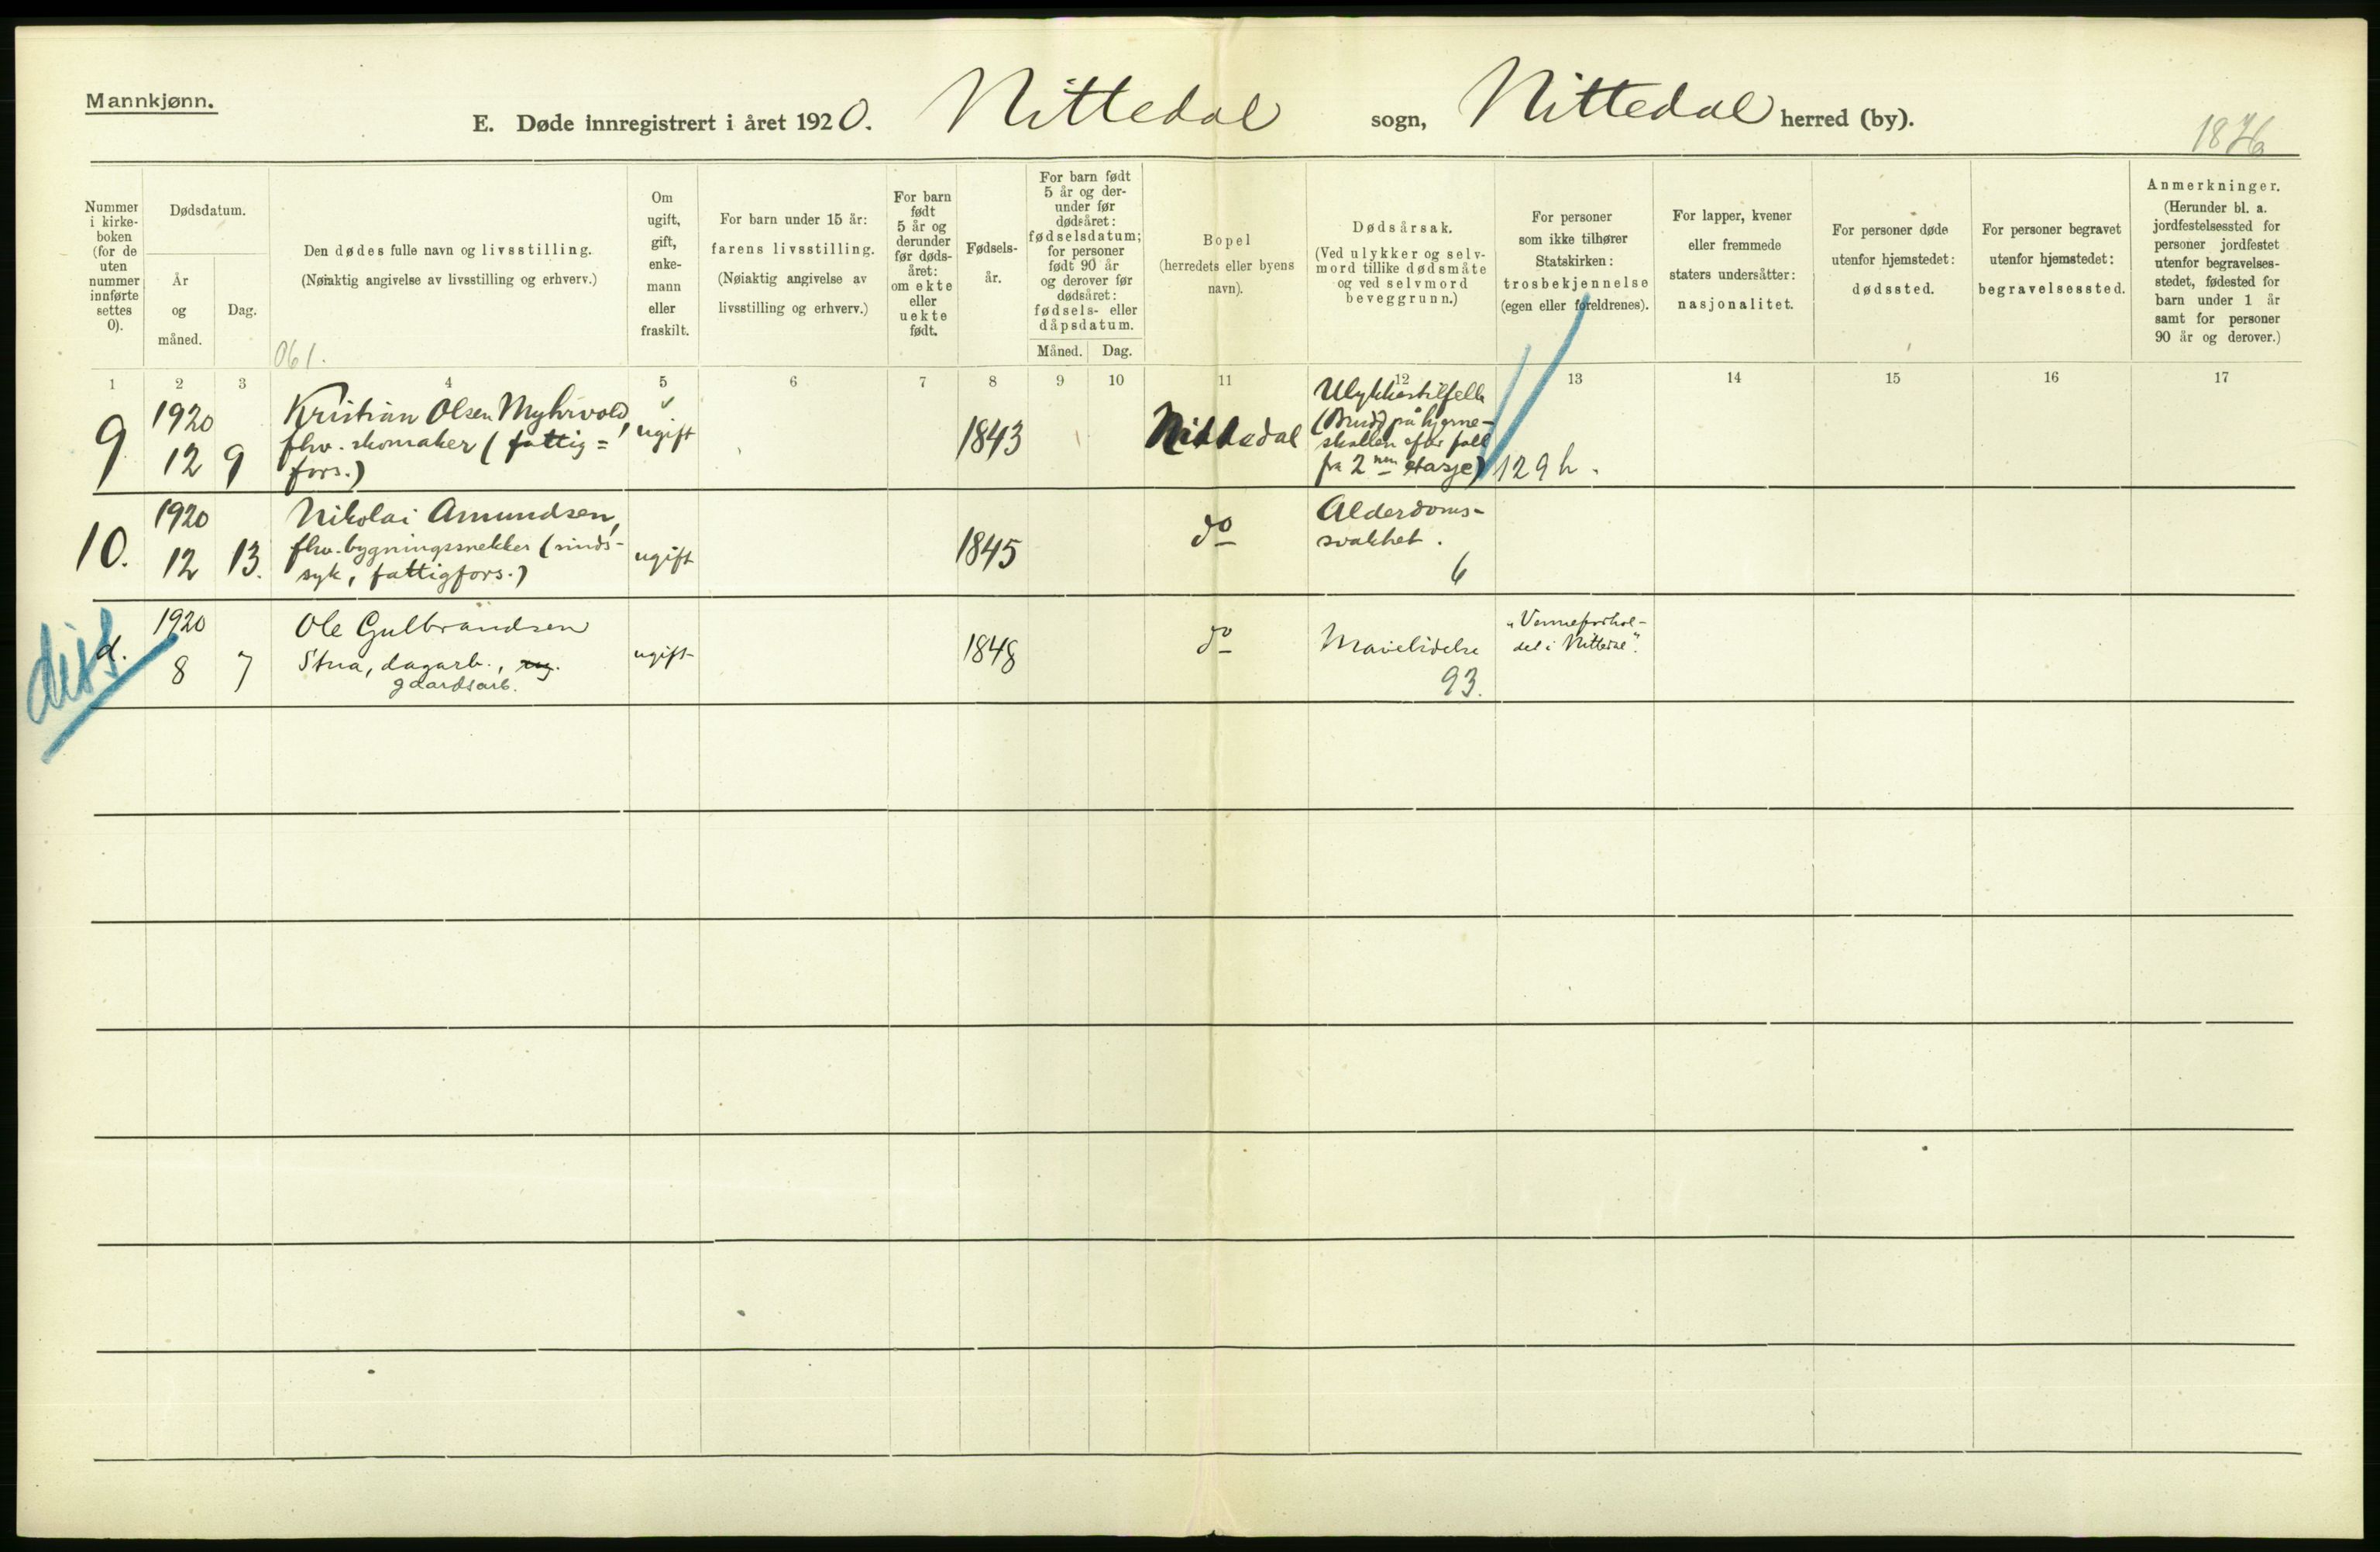 Mannkjønn.
E. Døde innregistrert i året 1920. Nittedal sogn, Nittedal herred (by).
1876
Nummer i kirke- boken (for de uten nummer innførte settes 0).
Dødsdatum.
År og måned.
Dag.
Den dødes fulle navn og livsstilling.
(Nøiaktig angivelse av livsstilling og erhverv.)
061.
Om ugift, gift, enke- mann eller fraskilt.
For barn under 15 år:
farens livsstilling.
(Nøiaktig angivelse av
livsstilling og erhverv.)
For barn født 5 år og derunder før døds- året: om ekte eller uekte født.
Fødsels- år.
For barn født 5 år og der- under før dødsåret: fødselsdatum; for personer født 90 år og derover før dødsåret: fødsels- eller dåpsdatum.
Måned. Dag.
Bopel
(herredets eller byens
navn).
Dødsårsak.
(Ved ulykker og selv-
mord tillike dødsmåte
og ved selvmord
beveggrunn.)
For personer
som ikke tilhører
Statskirken:
trosbekjennelse
(egen eller foreldrenes).
For lapper, kvener
eller fremmede
staters undersåtter:
nasjonalitet.
For personer døde
utenfor hjemstedet:
dødssted.
For personer begravet
utenfor hjemstedet:
begravelsessted.
Anmerkninger.
(Herunder bl. a.
jordfestelsessted for
personer jordfestet
utenfor begravelses-
stedet, fødested for
barn under 1 år
samt for personer
90 år og derover.)
1 2 3 4 5 6 7 8 9 10 11 12 13 14 15 16 17
9
1920
12 9
Kristian Olsen Myhrvold,
fhv. skomaker (fattig=
fors.)
ugift
1843
Nittedal
Ulykkestilfelle
(Brudd på hjerne-
skallen efter fall
fra 2nen etasje)
129 h.
10.
1920
12 13.
Nikolai Amundsen,
fhv. bygningssnekker (sinds-
syk, fattigfors.)
ugift
1845
do
Alderdoms-
svakhet.
6
diss
d.
1920
8 7
Ole Gulbrandsen
Stua, dagarb.,
gdardsarb.
ugift
1848
do
Mavelidelse
93.
"Venneforhol-
det i Nittedal".